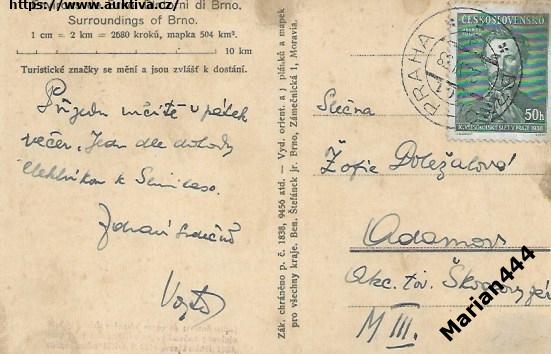 https://www.auktiva.cz/
Surroundings of Brno.
1 cm = 2 km = 2680 kroků, mapka 504 km².
10 km
Turistické značky se mění a jsou zvlášť k dostání.
Přijedu určitě v pátek
večer. Jedu dle dohody
Zdraví srdečně
Zák. chráněno p. č. 1838, 9456 atd. — Vyd. orient. a j plánků a mapek
pro všechny kraje. Ben. Štefánek jr. Brno, Zámečnická 1, Moravia.
PRAHA
ČESKOSLOVENSKO
50h
X. VŠESOKOLSKÝ SLET V PRAZE 1938
Slečna
Žofie Doležalová
Adamov
Akc. tov. Škodovy záv
M III.
Marian444